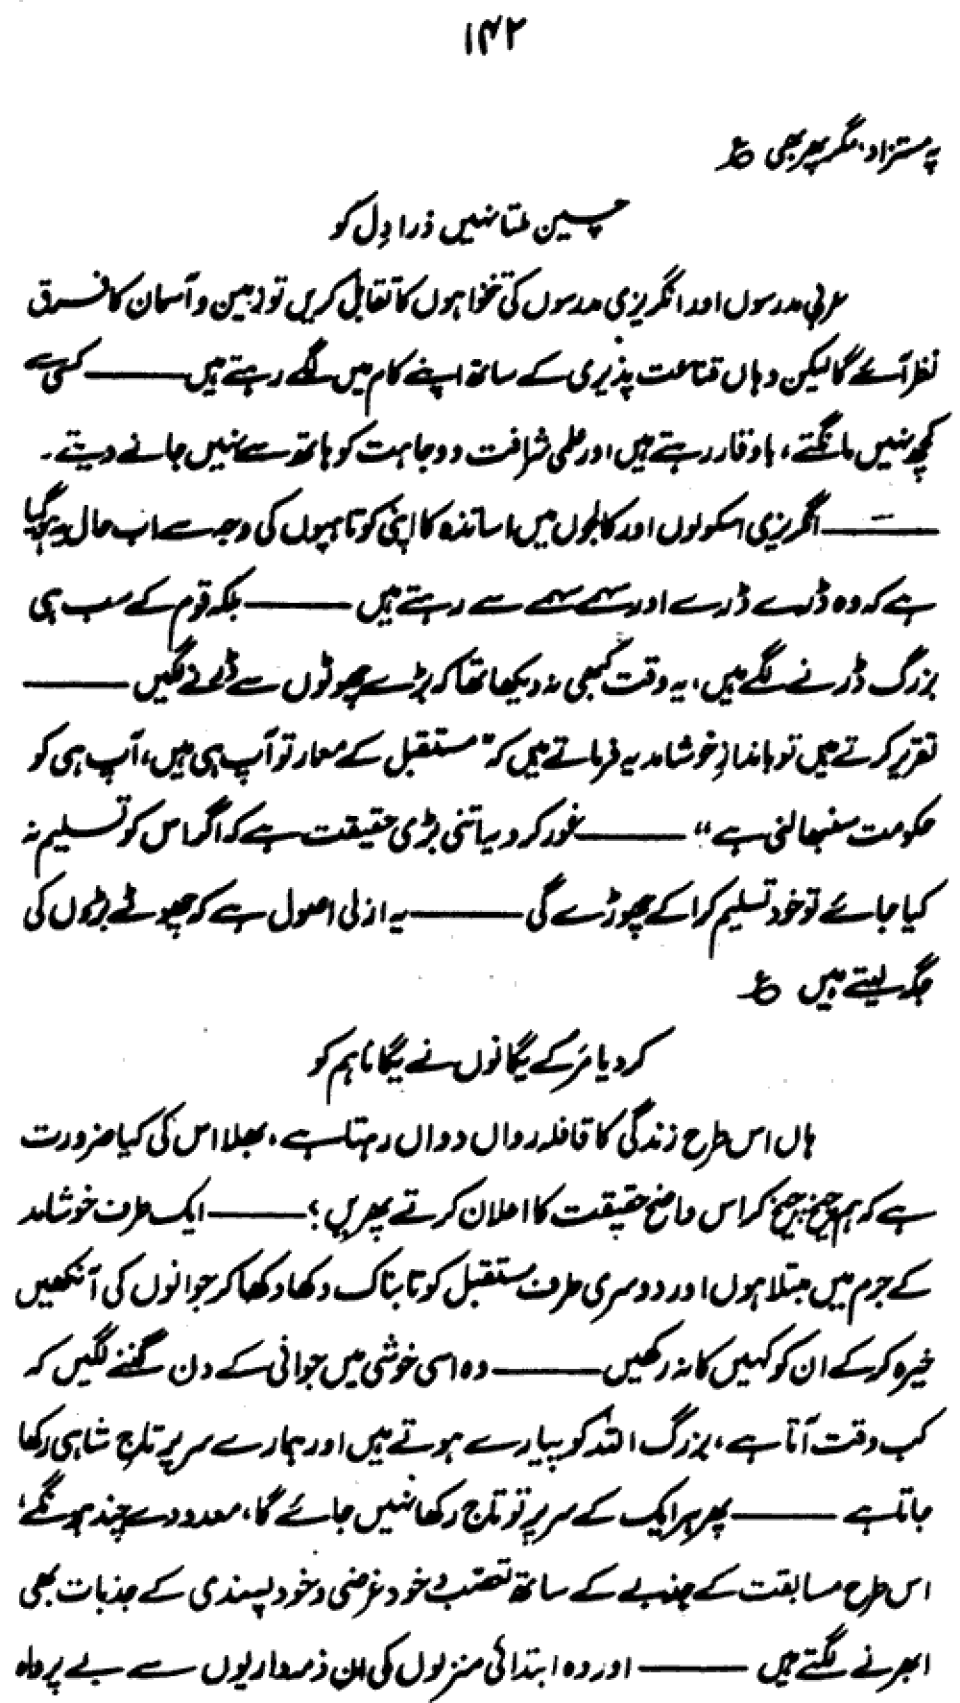 ۱۴۲
پہ مستزاد، مگر پھر بھی ؏
چین ملتا نہیں ذرا دِل کو
عربی مدرسوں اور انگریزی مدرسوں کی تنخواہوں کا تقابل کریں تو زمین و آسمان کا فرق
نظر آئے گا لیکن وہاں قناعت پذیری کے ساتھ اپنے کام میں لگے رہتے ہیں ــــــــ کسی سے
کچھ نہیں مانگتے، باوقار رہتے ہیں اور علمی شرافت و وجاہت کو ہاتھ سے نہیں جانے دیتے۔
ــــــــ انگریزی اسکولوں اور کالجوں میں اساتذہ کا اپنی کوتاہیوں کی وجہ سے اب حال یہ ہو گیا
ہے کہ وہ ڈرے ڈرے اور سہمے سہمے سے رہتے ہیں ــــــــ بلکہ قوم کے سب ہی
بزرگ ڈرنے لگے ہیں، یہ وقت کبھی نہ دیکھا تھا کہ بڑے چھوٹوں سے ڈرنے لگیں ــــــــ
تقریر کرتے ہیں تو باندازِ خوشامد یہ فرماتے ہیں کہ "مستقبل کے معمار تو آپ ہی ہیں، آپ ہی کو
حکومت سنبھالنی ہے" ــــــــ غور کرو یہ اتنی بڑی حقیقت ہے کہ اگر اس کو تسلیم نہ
کیا جائے تو خود تسلیم کرا کے چھوڑے گی ــــــــ یہ ازلی اصول ہے کہ چھوٹے بڑوں کی
جگہ لیتے ہیں ؏
کر دیا مَر کے یگانوں نے یگانا ہم کو
ہاں اس طرح زندگی کا قافلہ رواں دواں رہتا ہے، بھلا اس کی کیا ضرورت
ہے کہ ہم چیخ چیخ کر اس واضح حقیقت کا اعلان کرتے پھریں؟ ــــــــ ایک طرف خوشامد
کے جرم میں مبتلا ہوں اور دوسری طرف مستقبل کو تابناک دکھا دکھا کر جوانوں کی آنکھیں
خیرہ کر کے ان کو کہیں کا نہ رکھیں ــــــــ وہ اسی خوشی میں جوانی کے دن گننے لگیں کہ
کب وقت آتا ہے، بزرگ اللہ کو پیارے ہوتے ہیں اور ہمارے سر پر تاجِ شاہی رکھا
جاتا ہے ــــــــ پھر ہر ایک کے سر پر تو تاج رکھا نہیں جائے گا، معدودے چند ہونگے،
اس طرح مسابقت کے جذبے کے ساتھ تعصّب و خود غرضی و خود پسندی کے جذبات بھی
ابھرنے لگتے ہیں ــــــــ اور وہ ابتدائی منزلوں کی ان ذمہ داریوں سے بے پرواہ